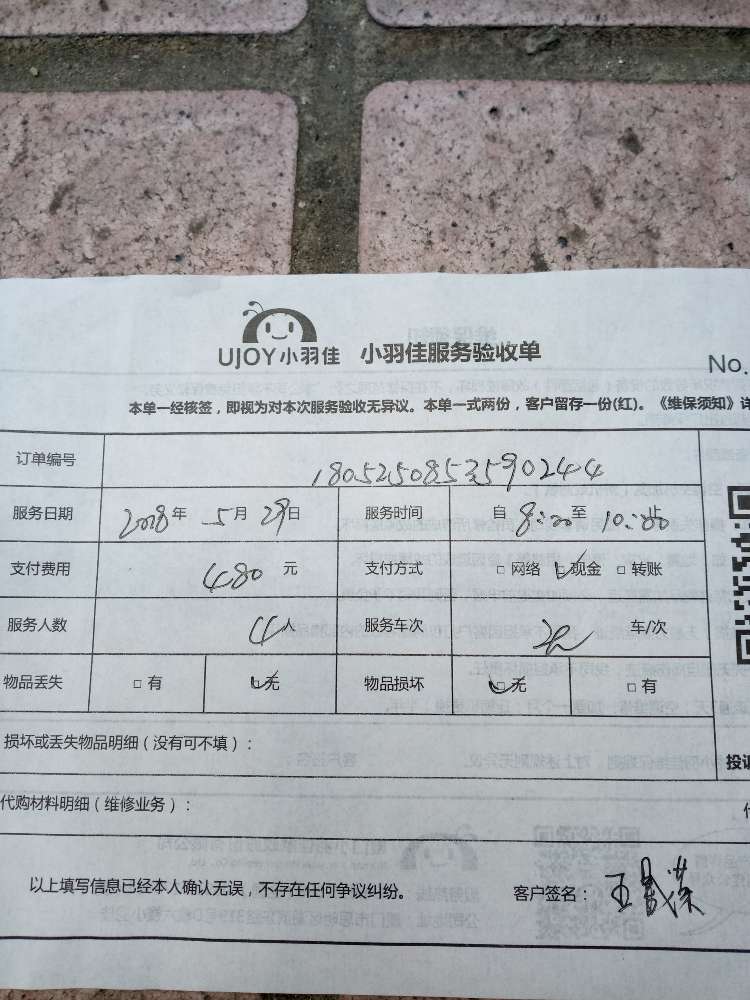 UJOY小羽佳 小羽佳服务验收单
No.
本单一经核签，即视为对本次服务验收无异议。本单一式两份，客户留存一份(红)。《维保须知》详
订单编号 1805250853590244
服务日期 2018年 5月 29日 服务时间 自 8:00至 10:00止
支付费用 480 元 支付方式 □网络 ☑现金 □转账
服务人数 4人 服务车次 2 车/次
物品丢失 □有 ☑无 物品损坏 ☑无 □有
损坏或丢失物品明细（没有可不填）：
投诉
代购材料明细（维修业务）：
以上填写信息已经本人确认无误，不存在任何争议纠纷。 客户签名：王